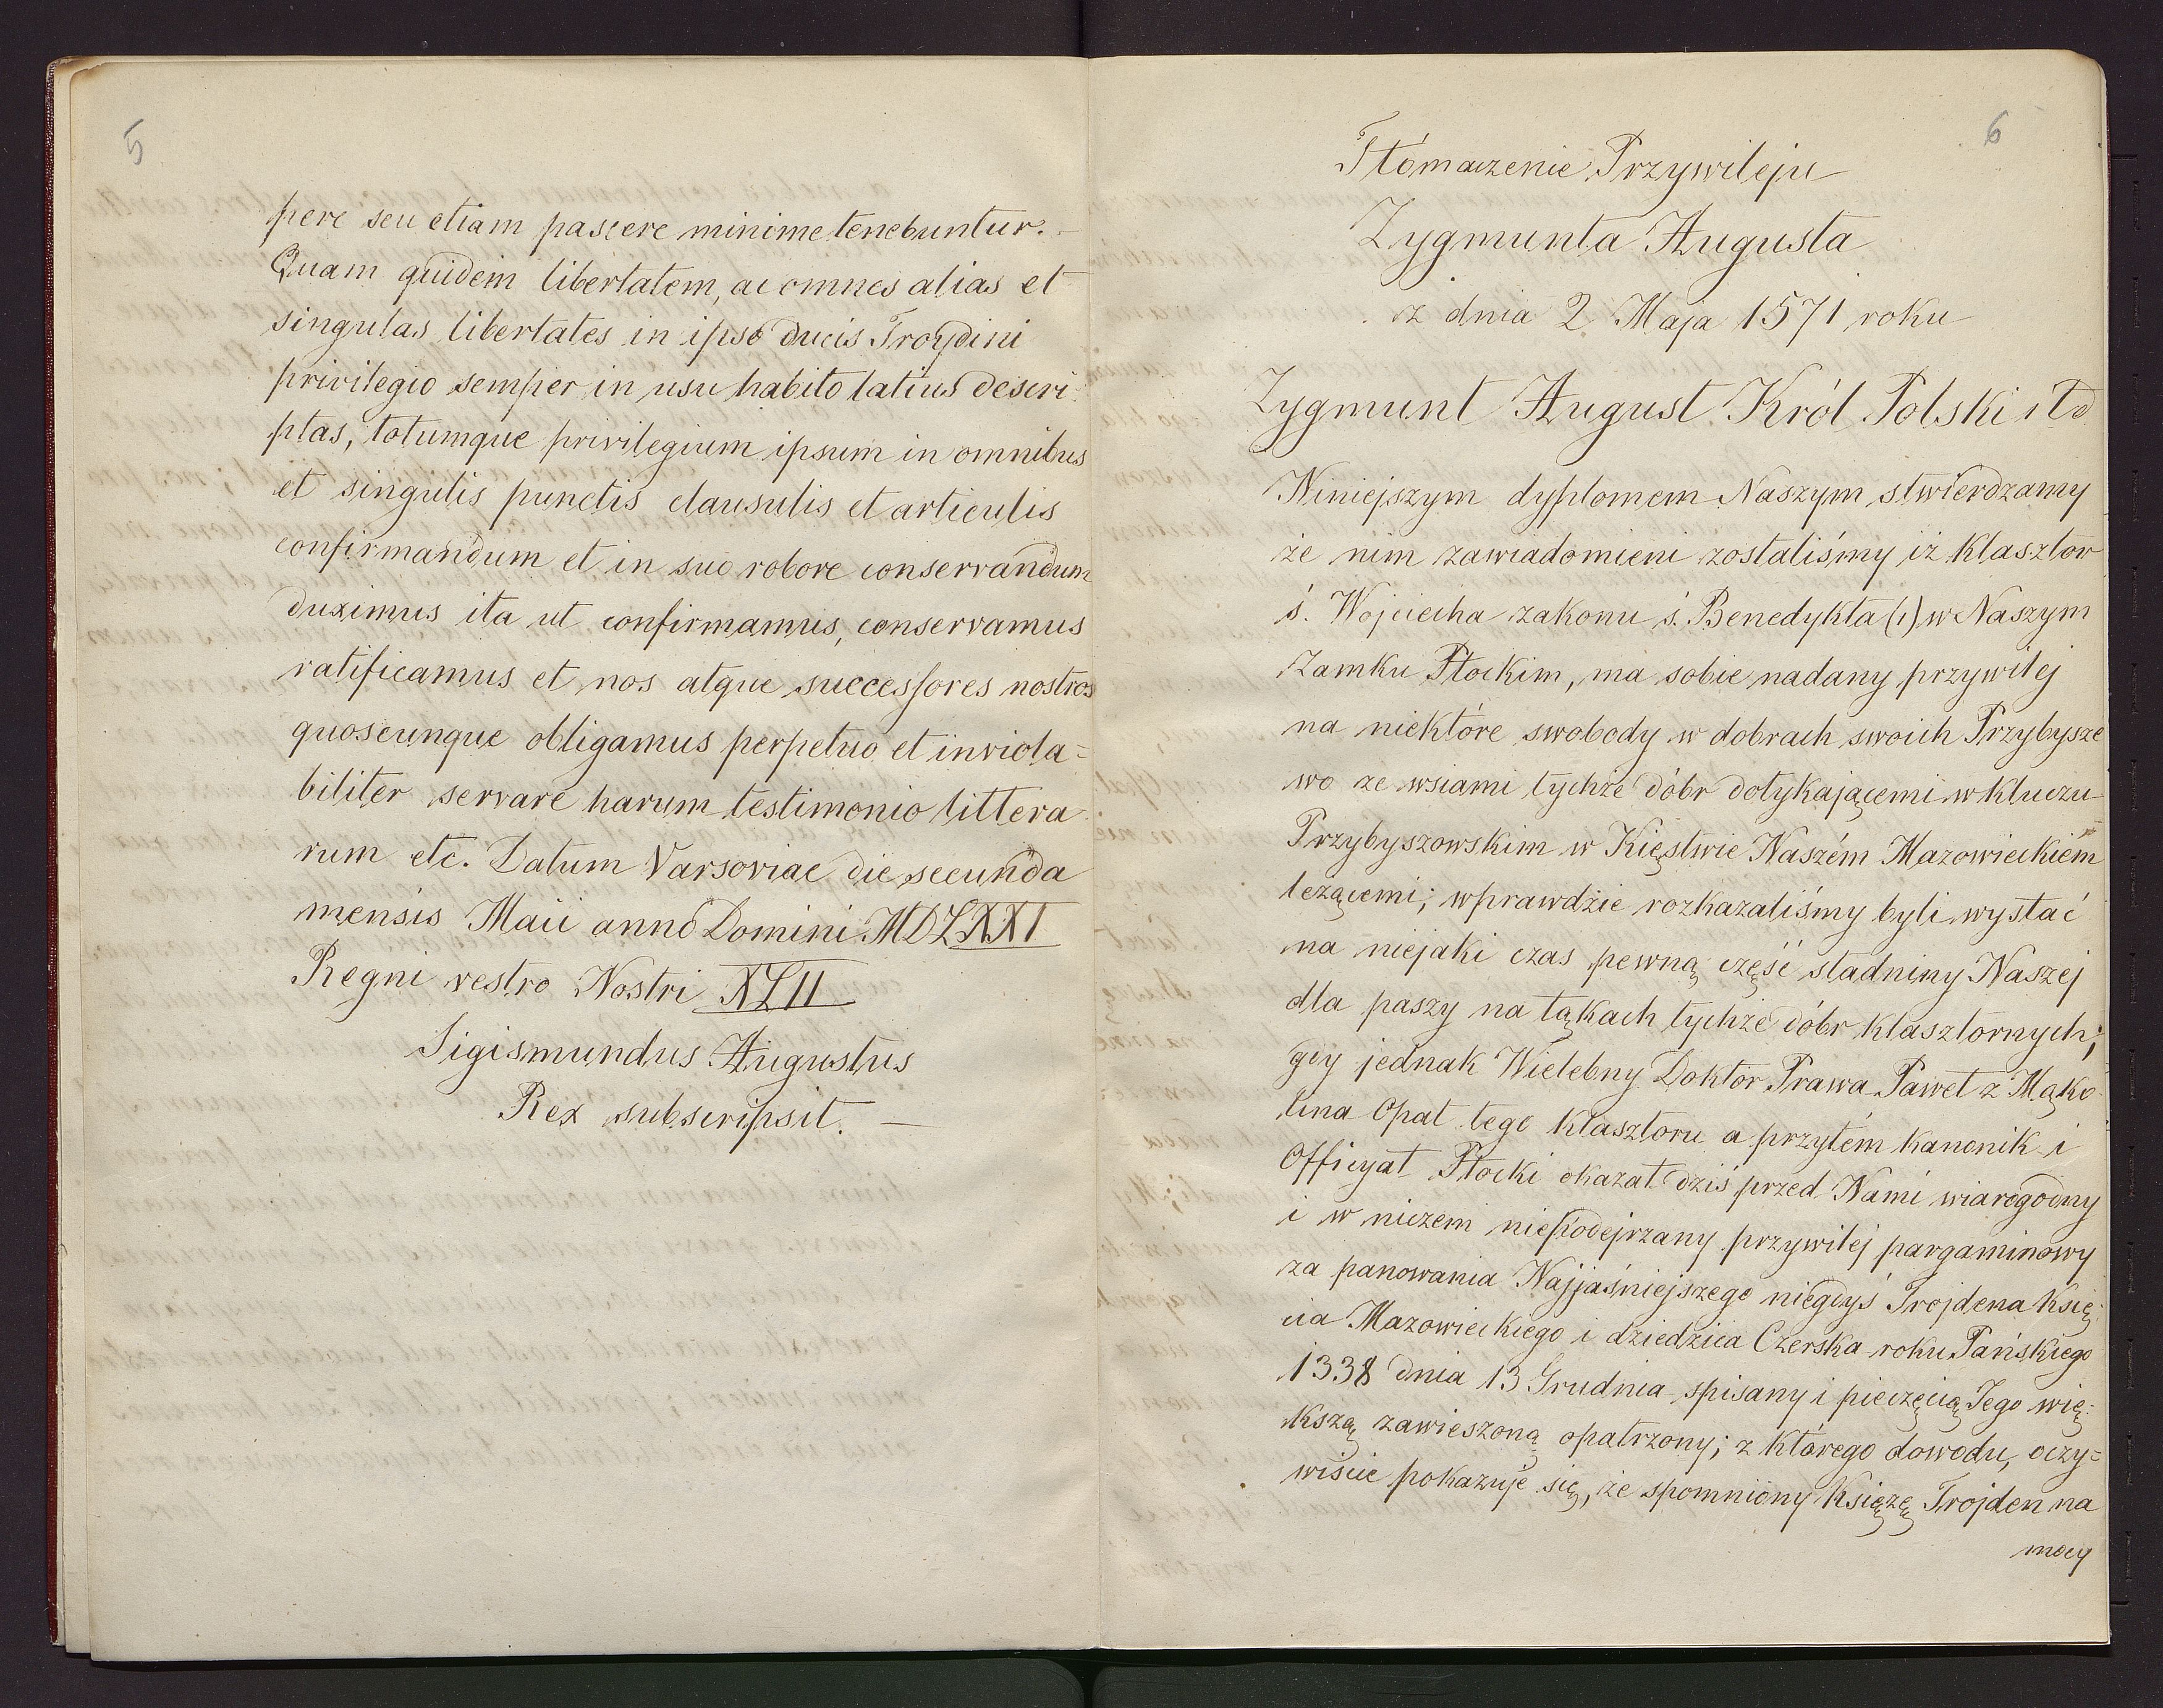 5
pere seu etiam pascere minime tenebuntur. —
Quam quidem libertatem, ac omnes alias et
singulas libertates in ipso ducis Troydini
privilegio semper in usu habito latius descri-
ptas, totumque privilegium ipsum in omnibus
et singulis punctis clausulis et articulis
confirmandum et in suo robore conservandum
duximus ita ut confirmamus, conservamus
ratificamus et nos atque successores nostros
quoscunque obligamus perpetuo et inviola=
biliter servare harum testimonio littera
rum etc. Datum Varsoviae die secunda
mensis Maii anno Domini MDLXXI
Regni vestro Nostri XLII
Sigismundus Augustus
Rex subscripsit. —
6
Tłómaczenie Przywileju
Zygmunta Augusta
z dnia 2 Maja 1571 roku
Zygmunt August Król Polski itd
Niniejszym dyplomem Naszym stwierdzamy
że nim zawiadomieni zostaliśmy iż klasztor
ś. Wojciecha zakonu ś. Benedykta (1) w Naszym
Zamku Płockim, ma sobie nadany przywilej
na niektóre swobody w dobrach swoich Przybysze
wo ze wsiami tychże dóbr dotykającemi w kluczu
Przybyszowskim w Kięstwie Naszém Mazowieckiém
leżącemi; wprawdzie rozkazaliśmy byli wysłać
na niejaki czas pewną część stadniny Naszej
dla paszy na łąkach tychże dóbr klasztornych;
gdy jednak Wielebny Doktor Prawa Paweł z Mąko-
lina Opat tego klasztoru a przytém kanonik i
Officyał Płocki okazał dziś przed Nami wiarogodny
i w niczem niepodejrzany przywilej pargaminowy
za panowania Najjaśniejszego niegdyś Trojdena Księ-
cia Mazowieckiego i dziedzica Czerska roku Pańskiego
1338 dnia 13 Grudnia spisany i pieczęcią Jego wię-
kszą zawieszoną opatrzony; z którego dowodu, oczy=
wiście pokazuje się, że spomniony Książę Trojden na
mocy